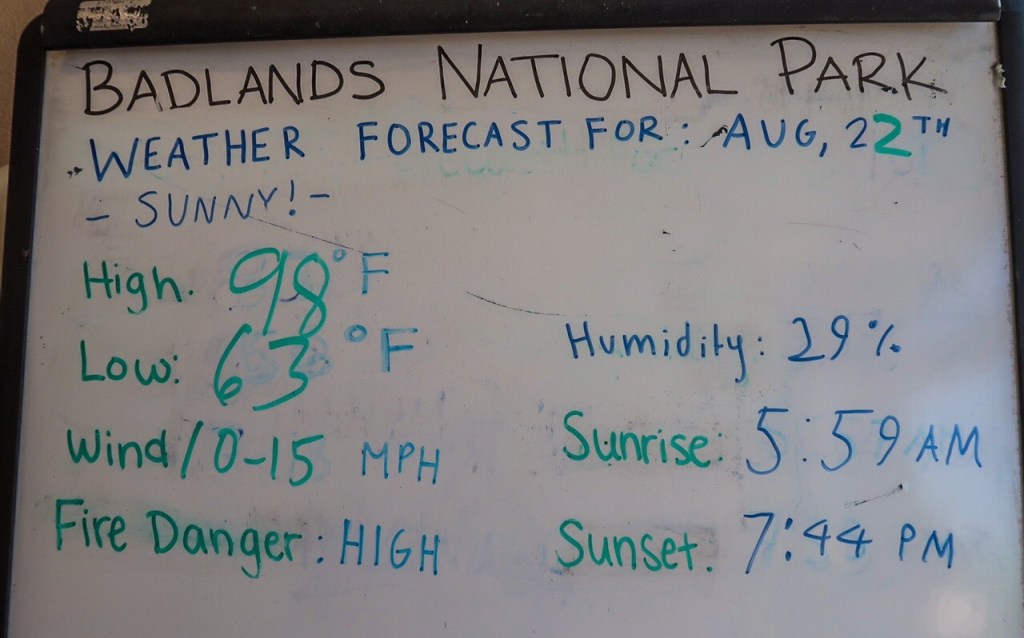 BADLANDS NATIONAL PARK
WEATHER FORECAST FOR: AUG, 22TH
- SUNNY! -
High. 98°F
Low: 63°F
Wind 10-15 MPH
Fire Danger: HIGH
Humidity: 29%
Sunrise: 5:59 AM
Sunset. 7:44 PM